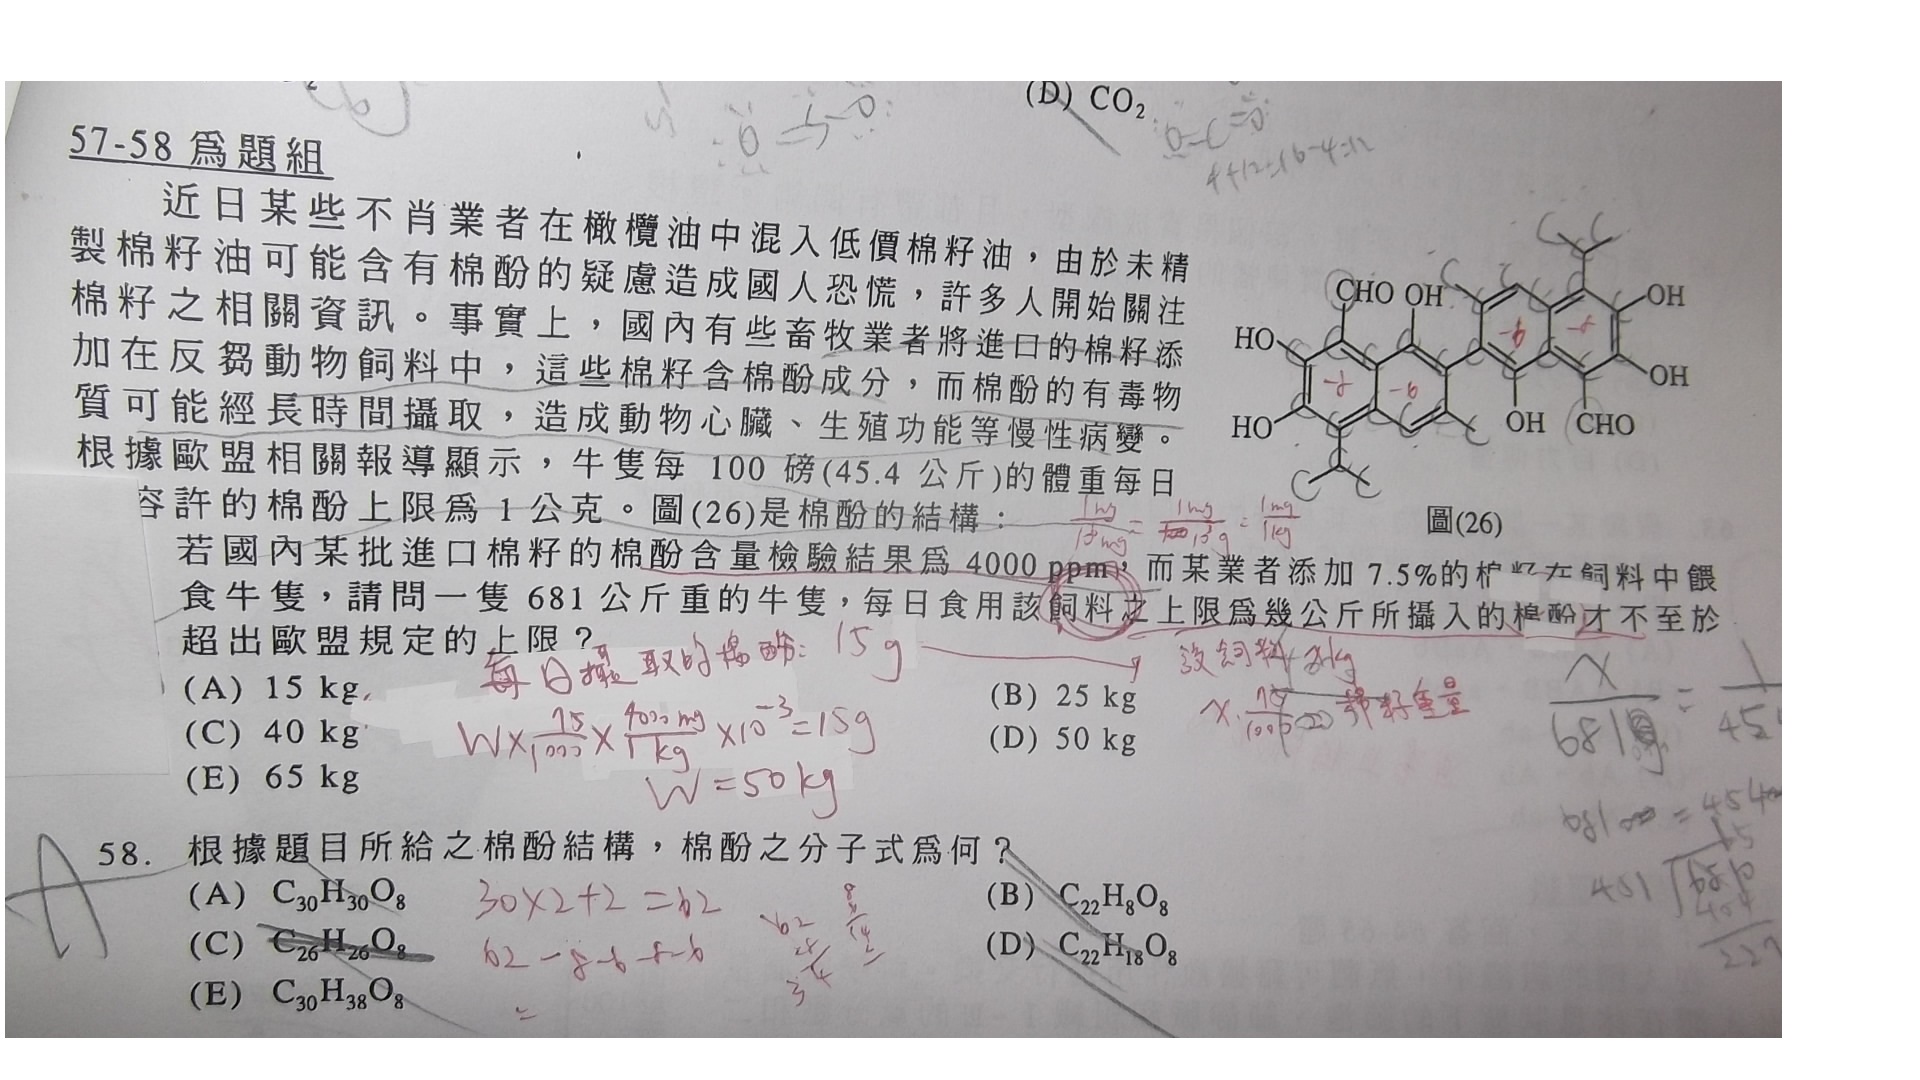 (D) CO₂
4+12=16-4=12
57-58 為題組
近日某些不肖業者在橄欖油中混入低價棉籽油，由於未精
製棉籽油可能含有棉酚的疑慮造成國人恐慌，許多人開始關注
棉籽之相關資訊。事實上，國內有些畜牧業者將進口的棉籽添
加在反芻動物飼料中，這些棉籽含棉酚成分，而棉酚的有毒物
質可能經長時間攝取，造成動物心臟、生殖功能等慢性病變。
根據歐盟相關報導顯示，牛隻每 100 磅(45.4 公斤)的體重每日
容許的棉酚上限為 1 公克。圖(26)是棉酚的結構：
CHO OH
HO
HO
OH
OH
OH CHO
圖(26)
若國內某批進口棉籽的棉酚含量檢驗結果為 4000 ppm，而某業者添加 7.5%的棉籽在飼料中餵
食牛隻，請問一隻 681 公斤重的牛隻，每日食用該飼料之上限為幾公斤所攝入的棉酚才不至於
超出歐盟規定的上限？
每日攝取的棉酚：15g
設飼料 x kg
(A) 15 kg
(B) 25 kg
(C) 40 kg
(D) 50 kg
(E) 65 kg
W × 75/1000 × 4000 mg/1 kg × 10⁻³ = 15g
W = 50 kg
58. 根據題目所給之棉酚結構，棉酚之分子式為何？
(A) C₃₀H₃₀O₈
(B) C₂₂H₈O₈
(C) C₂₆H₂₆O₈
(D) C₂₂H₁₈O₈
(E) C₃₀H₃₈O₈
30×2+2=62
62-8-6-8-6
=